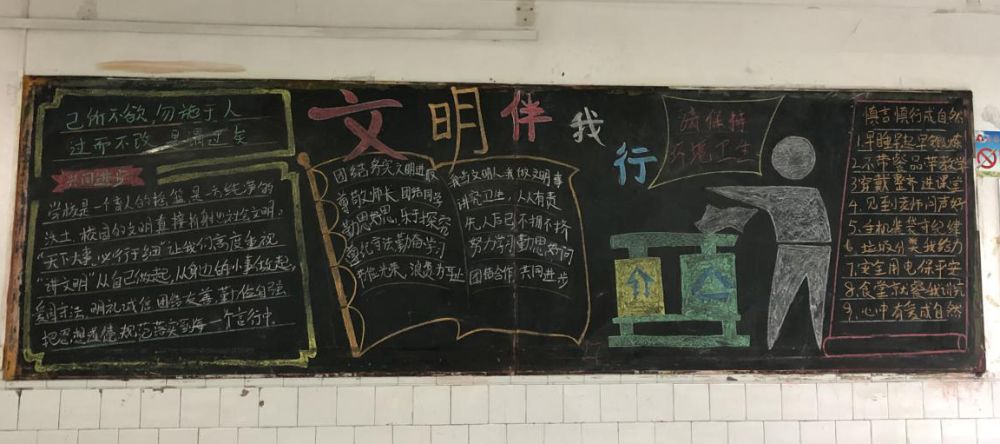 己所不欲 勿施于人
过而不改 是谓过矣
共同进步
学校是一个育人的摇篮 是方纯净的
沃土 校园的文明直接折射出社会文明,
"天下大事,必作于细"让我们高度重视
"讲文明"从自己做起,从身边的小事做起,
爱国守法,明礼诚信 团结友善 勤俭自强
把思想道德规范落实到每一个言行中.
文明伴我行
团结务实文明进取
尊敬师长 团结同学
勤思梦想,乐于探究
遵纪守法勤俭学习
节俭光荣,浪费可耻
我与文明人 我做文明事
讲究卫生,人人有责
先人后己 不拥不挤
努力学习 勤思好问
团结合作 共同进步
请保持
环境卫生
慎言慎行成自然
1.早睡早起早锻炼
2.不带餐品带教学
3.穿戴整齐进课堂
4.见到老师问声好
5.手机装袋守纪律
6.垃圾分类我给力
7.安全用电保平安
8.食堂就餐我
9.心中有爱成自然